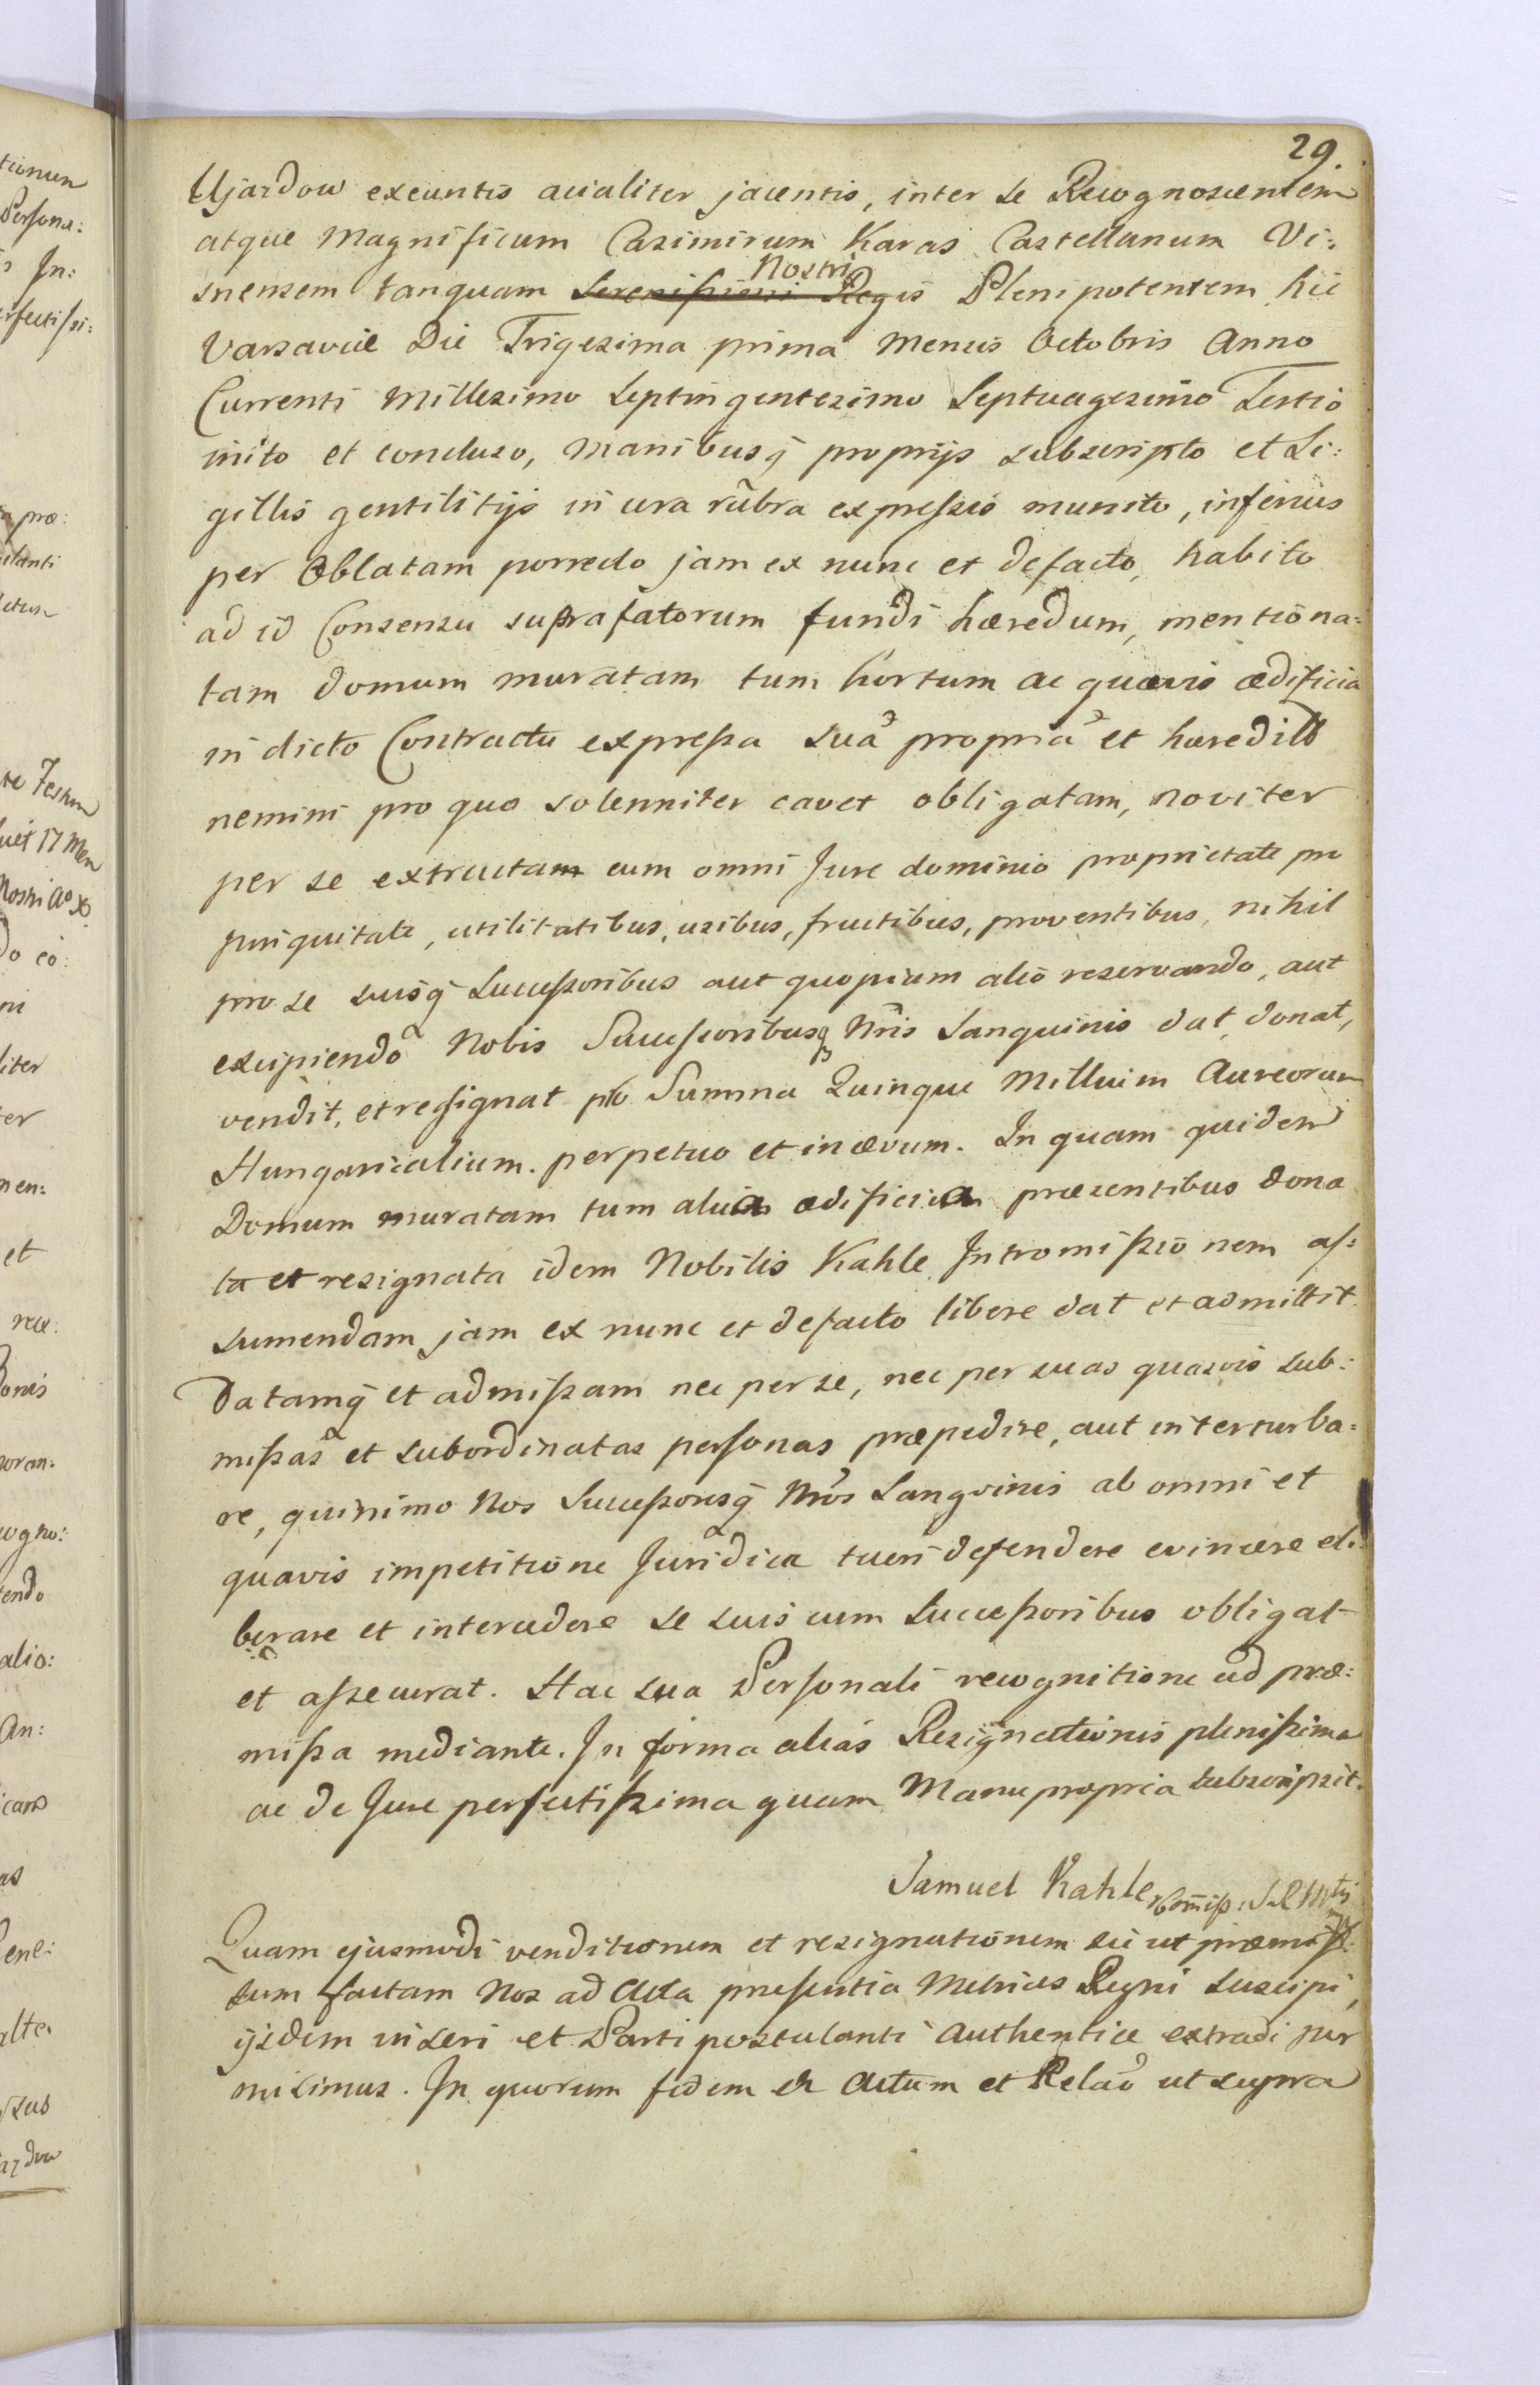 29.
Ujazdow exeuntis acialiter jacentis, inter se Recognoscentem
atque Magnificum Casimirum Karas Castellanum Vi:
snensem tanquam Serenissimi Regis Nostri Plenipotentem hic
Varsaviæ Die Trigesima prima Mensis Octobris Anno
Currenti Millesimo Septingentesimo Septuagesimo Tertio
inito et concluso, Manibusq́ proprijs subscripto et Si:
gillis gentilitijs in cera rubra expressis munito, inferius
per Oblatam porrecto jam ex nunc et defacto, habito
ad id Consensu suprafatorum fundi hæredum, mentiona:
tam domum muratam tum hortum ac quævis ædificia
in dicto Contractu expressa sua propria et hæredit
nemini pro quo solenniter cavet obligatam, noviter
per se extructam cum omni Jure dominio proprietate pro
pinquitate, utilitatibus, usibus, fructibus, proventibus, nihil
pro se suisq́ Successoribus aut quopiam alio reservando, aut
excipiendo Nobis Successoribusq́ Nris Sanguinis dat, donat,
vendit, et resignat pro Summa Quinque Millium Aureorum
Hungaricalium. perpetuo et in ævum. In quam quidem
Domum muratam tum alia ædificia præsentibus dona
ta et resignata idem Nobilis Kahle Intromissionem as:
sumendam jam ex nunc et defacto libere dat et admittit
Datamq́ et admissam nec per se, nec per suas quasvis sub:
missas et subordinatas personas præpedire, aut interturba:
re, quinimo Nos Successoresq́ Nros Sangvinis ab omni et
quavis impetitione Juridica tueri defendere evincere eli
berare et intercedere se suis cum Successoribus obligat
et assecurat. Hac sua Personali recognitione ad præ:
missa mediante. In forma alias Resignationis plenissima
ac de Jure perfectissima quam Manu propria subscripsit.
Samuel Kahle Com̄iss: S R Mtis
Quam ejusmodi venditionem et resignationem sic ut præmis
sum factam Nos ad Acta præsentia Metrices Regni suscipi,
ijsdem inseri et Parti postulanti authentice extradi per
misimus. In quorum fidem etc Actum et Relaõ ut supra